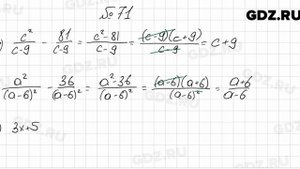 GDZ.RU
№ 71
) c²/(c-9) - 81/(c-9) = (c²-81)/(c-9) = ((c-9)(c+9))/(c-9) = c+9
a²/(a-6)² - 36/(a-6)² = (a²-36)/(a-6)² = ((a-6)(a+6))/(a-6)² = (a+6)/(a-6)
) 3x+5